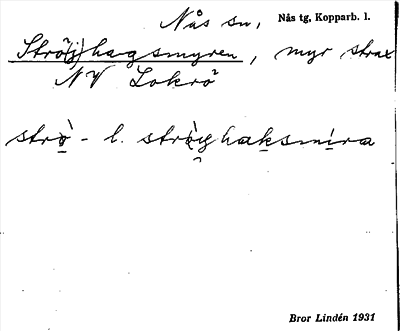 Nås sn, Nås tg, Kopparb. l.
Strö(j)hagsmyren, myr strax
NV Lokrö
strò̱ - l. strò̱y̯haḵsmi̱ra
Bror Lindén 1931